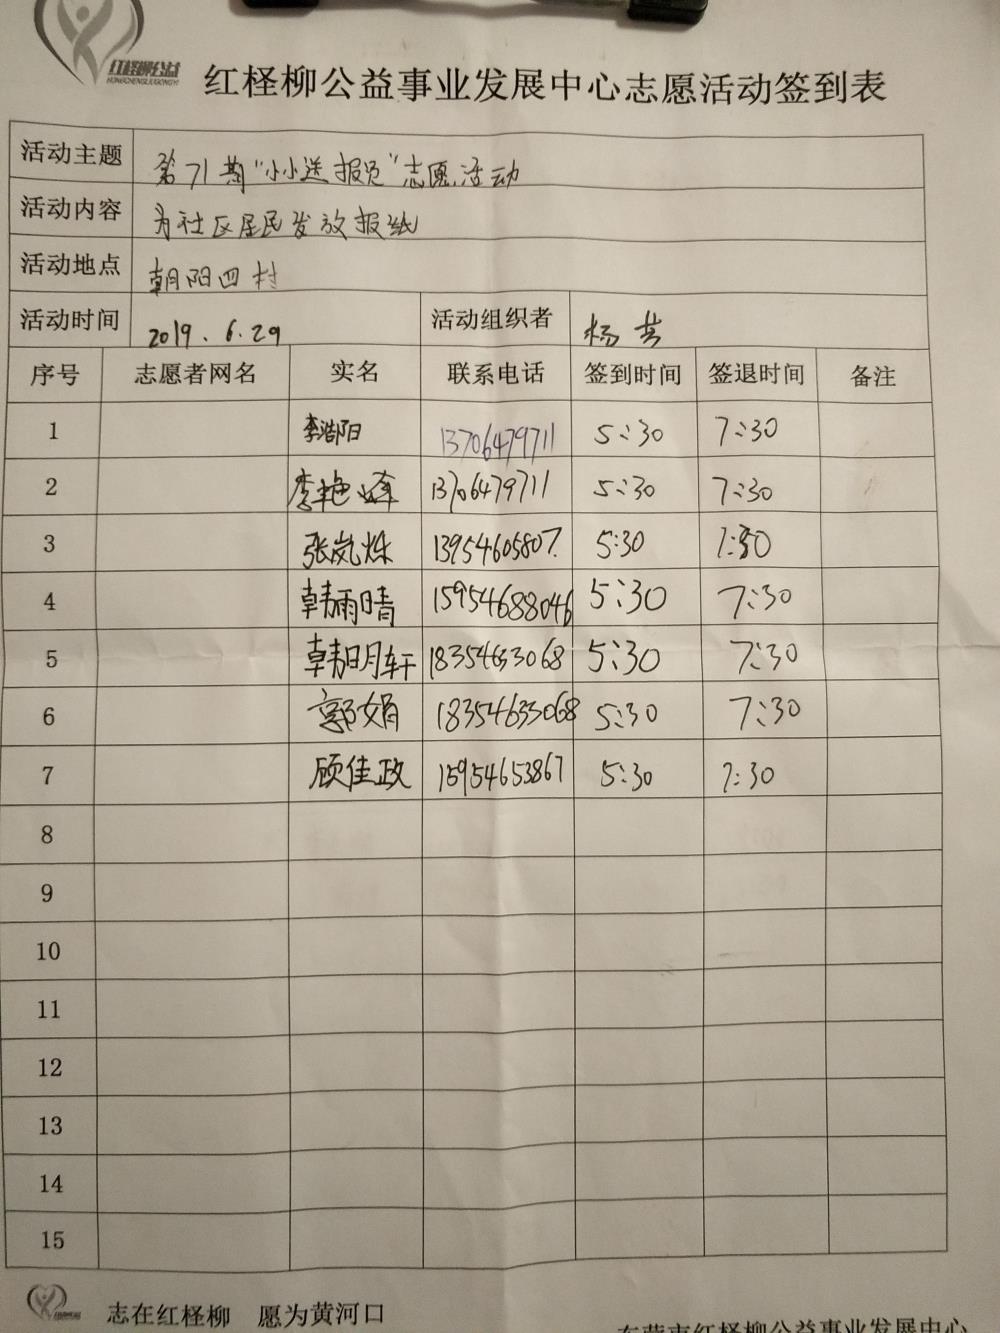 红柽柳公益
HONGCHENGLIUGONGYI
红柽柳公益事业发展中心志愿活动签到表
活动主题 第71期“小小送报员”志愿活动
活动内容 为社区居民发放报纸
活动地点 朝阳四村
活动时间 2019.6.29 活动组织者 杨芸
序号 志愿者网名 实名 联系电话 签到时间 签退时间 备注
1 李浩阳 13706479711 5:30 7:30
2 李艳峰 13706479711 5:30 7:30
3 张岚烁 13954605807. 5:30 7:30
4 韩雨晴 15954688046 5:30 7:30
5 韩明轩 18354633068 5:30 7:30
6 郭娟 18354633068 5:30 7:30
7 顾佳政 15954653867 5:30 7:30
8
9
10
11
12
13
14
15
志在红柽柳 愿为黄河口
东营市红柽柳公益事业发展中心